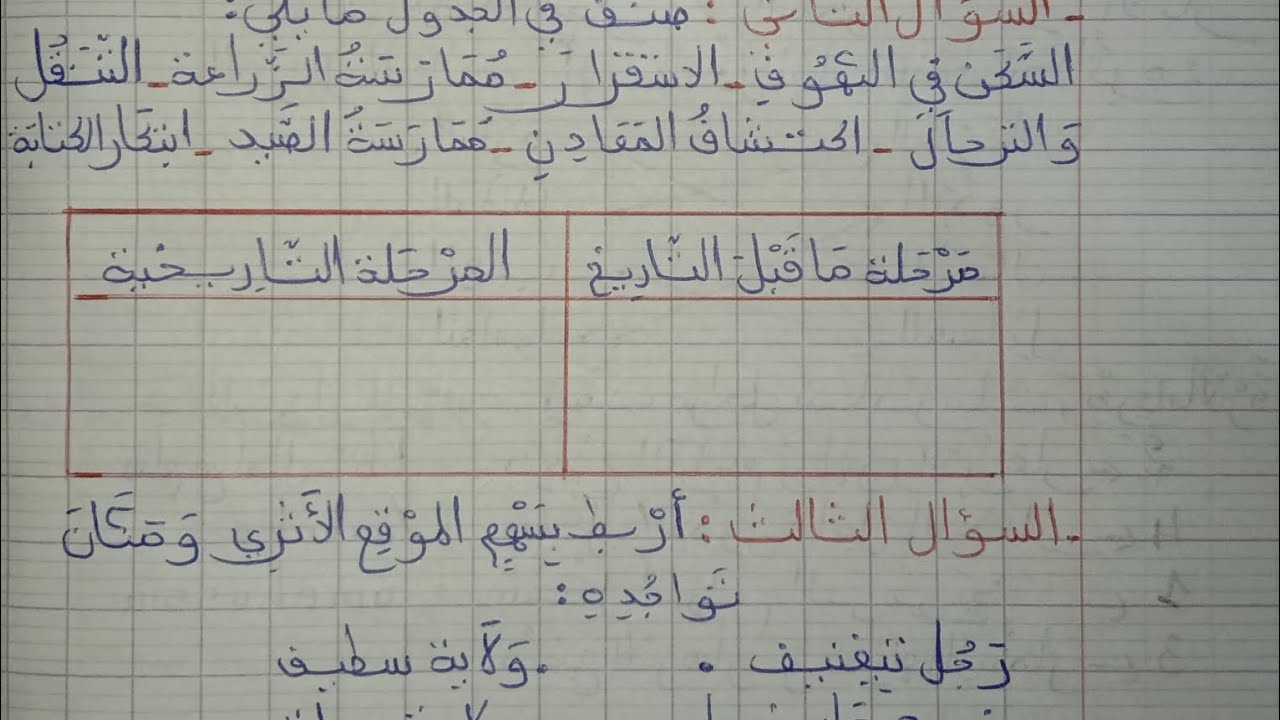 ـ السؤال الثاني : صنف في الجدول ما يلي:
السَّكَن في الكهُوفِ ـ الاسْتقرارَ ـ مُمَارَسَةُ الزِّرَاعة ـ التَّنَقُّل
وَالترحالَ ـ اكتشافُ المَعَادِنِ ـ مُمَارَسَةُ الصَّيد ـ ابتكار الكتابة
مَرْحَلة مَا قَبْلَ التَّارِيخ
المرْحَلة التَّارِيخية
ـ السؤال الثالث : أرْبط بِسَهْمٍ الموْقِع الأَثَرِي وَمَكَانَ
تَوَاجُدِهِ:
رَجُل تيغنيف . . وَلَاية سطيف